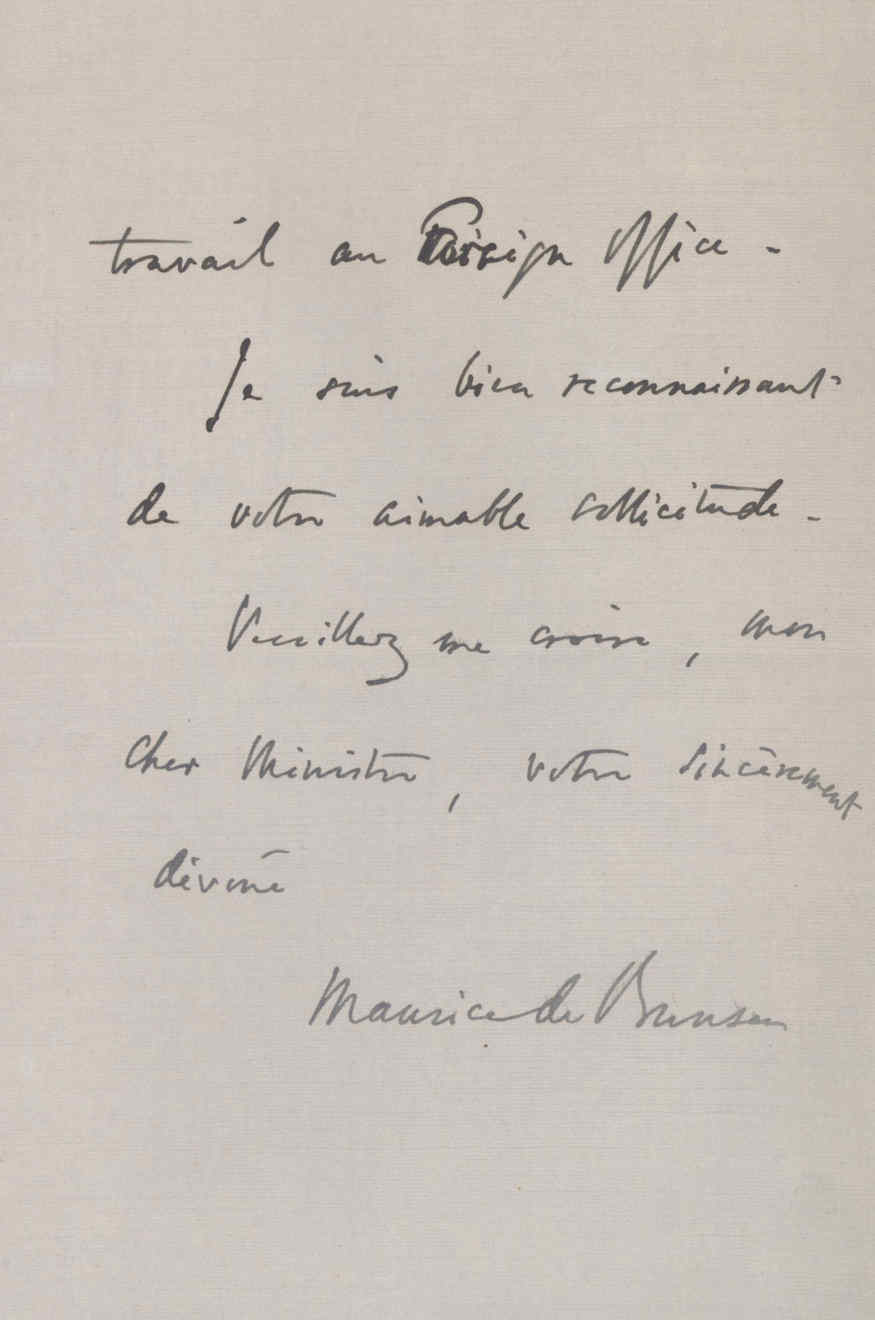 travail au Foreign Office -
Je suis bien reconnaissant
de votre aimable sollicitude -
Veuillez me croire, mon
cher Ministre, votre sincèrement
dévoué
Maurice de Bunsen